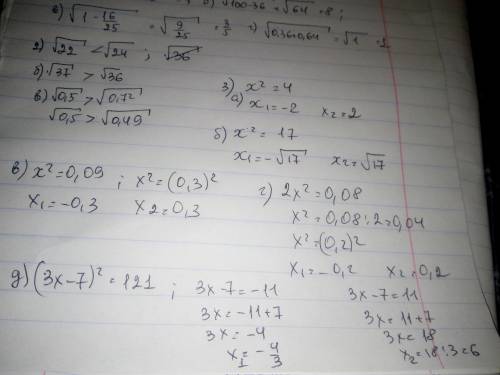 б) √100-36 = √64 = 8;
в) √1-16/25 = √9/25 = 3/5 г) √0,36+0,64 = √1 = 1
2) √22 < √24 ; √36
б) √37 > √36
в) √0,5 > √0,7²
√0,5 > √0,49
3) x² = 4
а) x₁ = -2 x₂ = 2
б) x² = 17
x₁ = -√17 x₂ = √17
в) x² = 0,09 ; x² = (0,3)²
x₁ = -0,3 x₂ = 0,3
г) 2x² = 0,08
x² = 0,08:2 = 0,04
x² = (0,2)²
x₁ = -0,2 x₂ = 0,2
д) (3x-7)² = 121 ; 3x-7 = -11 3x-7 = 11
3x = -11+7 3x = 11+7
3x = -4 3x = 18
x₁ = -4/3 x₂ = 18:3 = 6